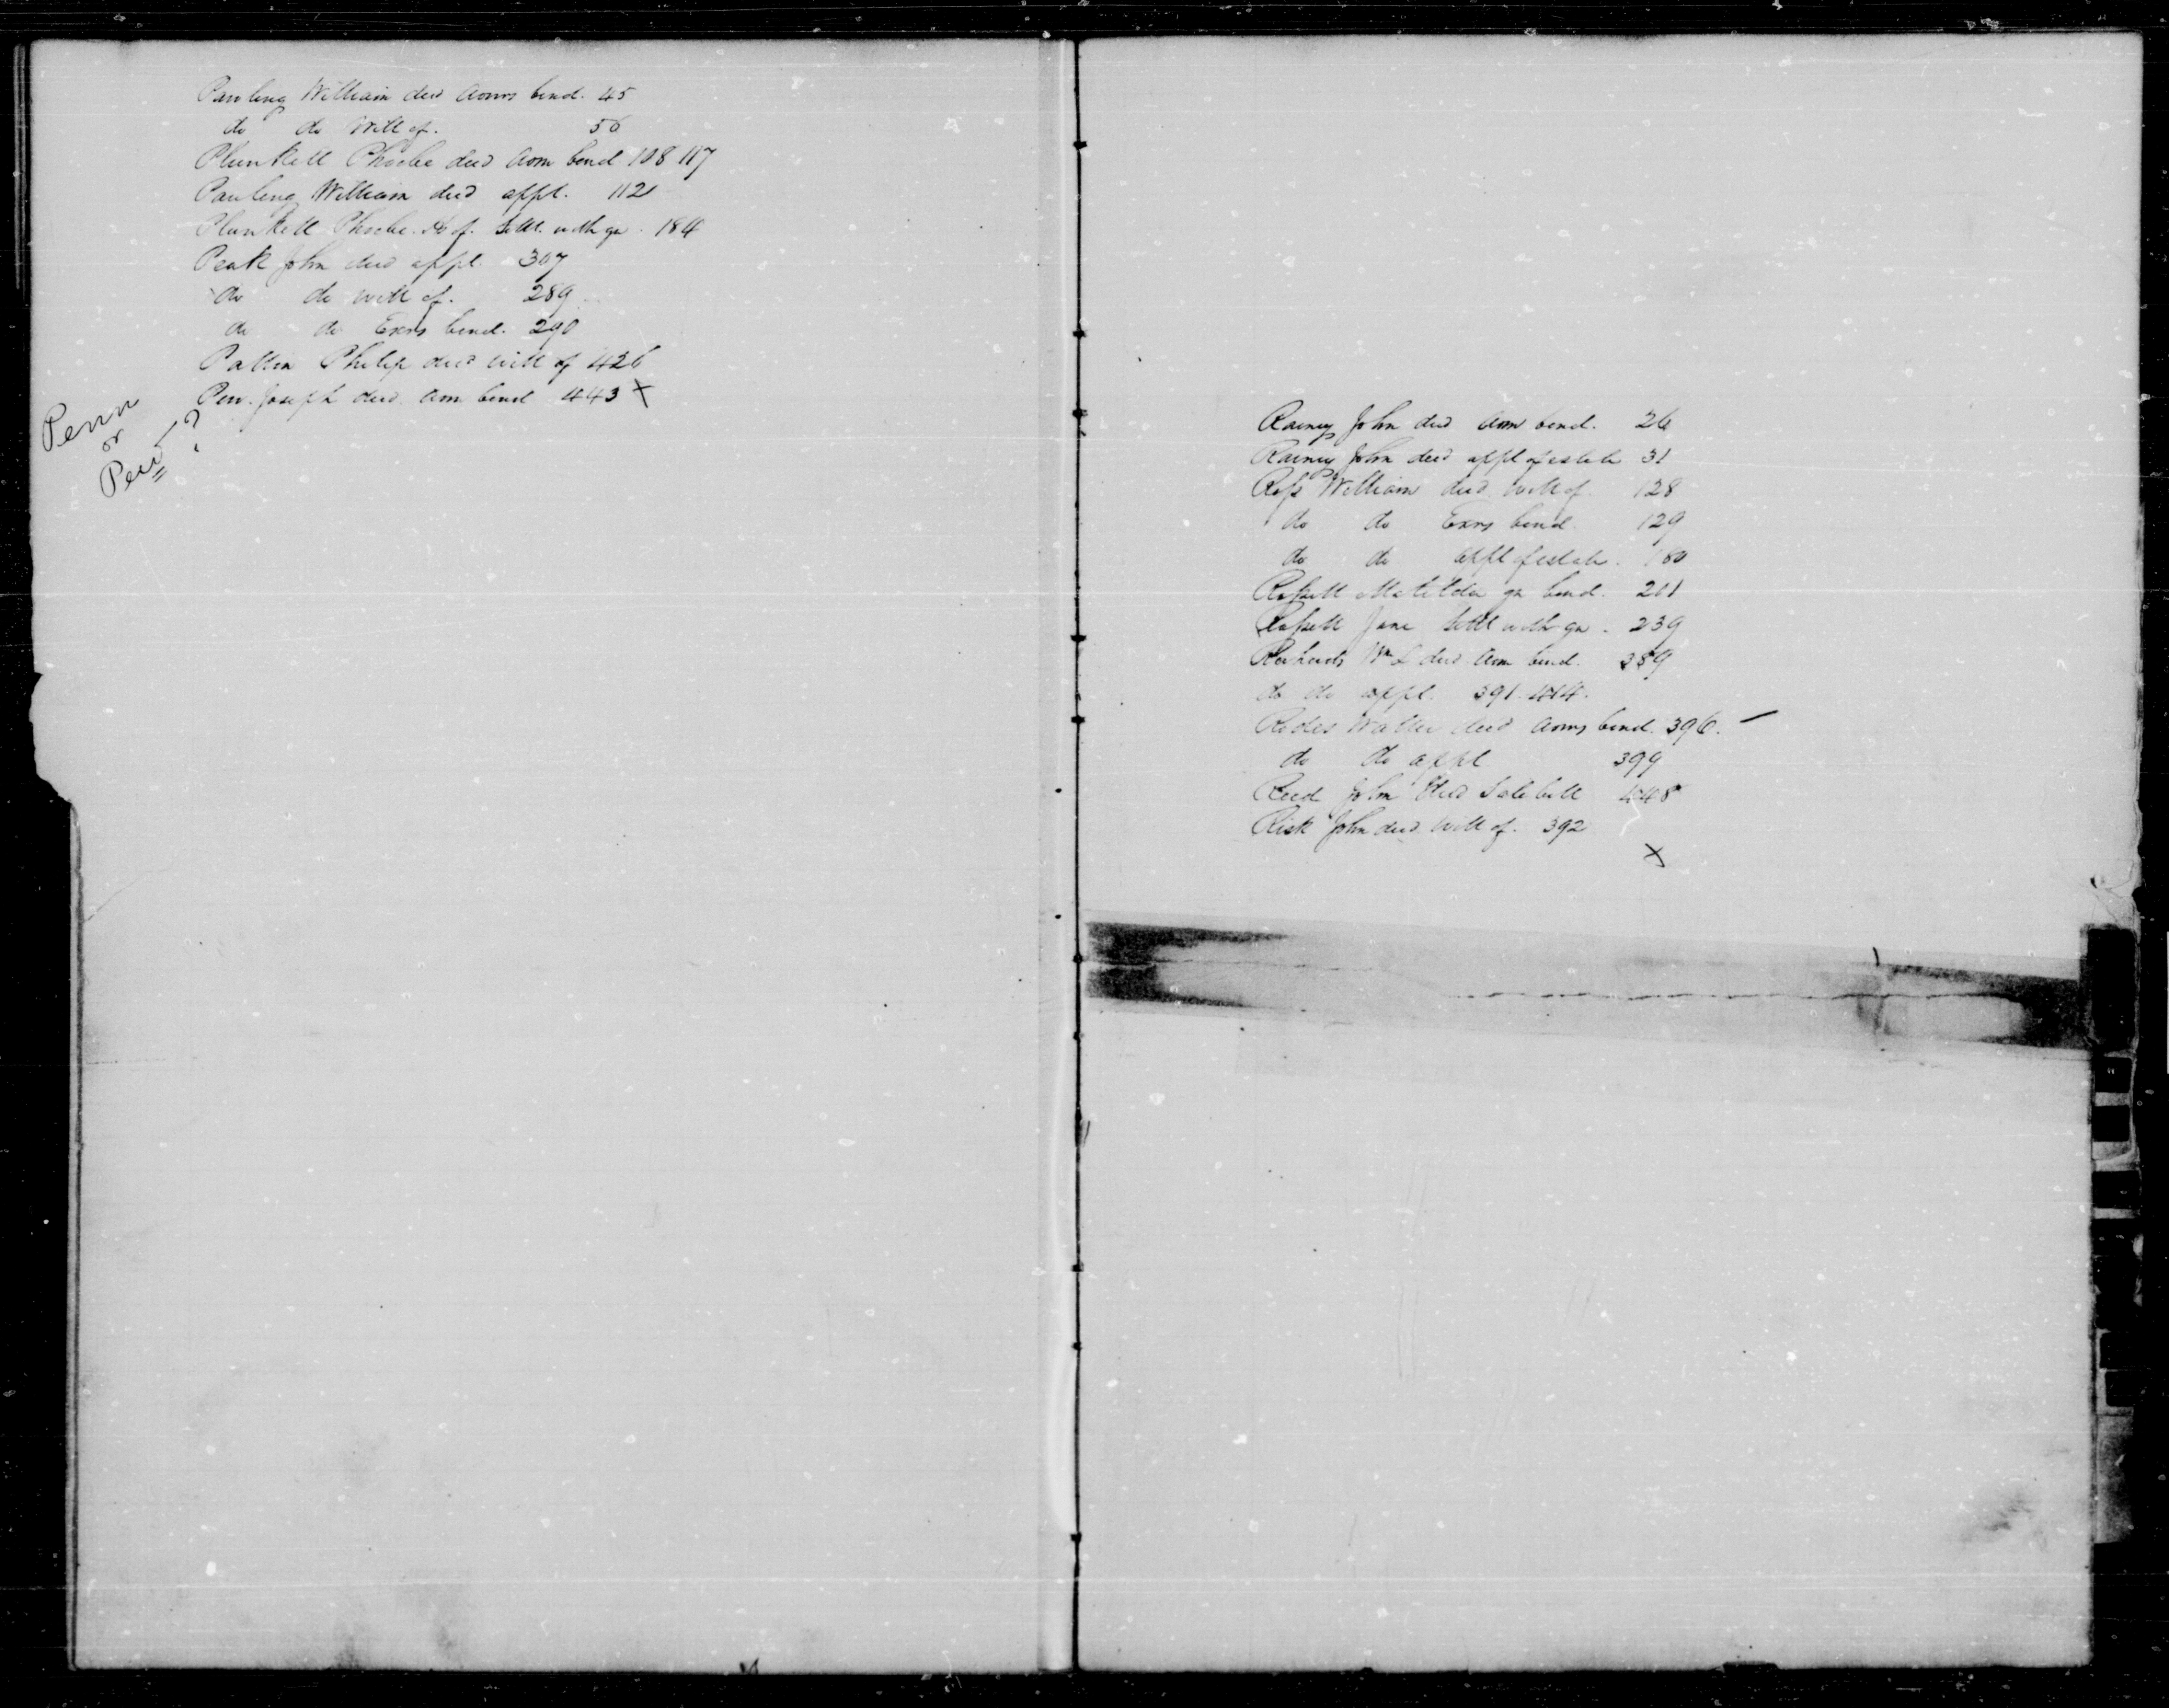 Pauling William decd Admrs bond. 45
do do Will of. 56
Plunkett Phoebe decd Adm bond 108 117
Pauling William decd appt. 112
Plunkett Phoebe. Hs of. Settt. with gn. 184
Peak John decd appt. 307
do do will of. 289
do do Exrs bond. 290
Patton Philip decd will of 426
Pew. Joseph decd Adm bond 443 X
Penn
or
Pew ?
Rainey John decd Adm bond. 26
Rainey John decd appt of estate 31
Ross William decd will of. 128
do do Exrs bond. 129
do do appt of estate. 180
Russell Matilda gn bond. 201
Russell Jane Settt with gn. 239
Wm L decd Adm bond. 389
do do appt. 391. 414.
Rodes Waller decd Admrs bond. 396. –
do do appt 399
Reed John decd Sale bill 448
Risk John decd will of. 392
X